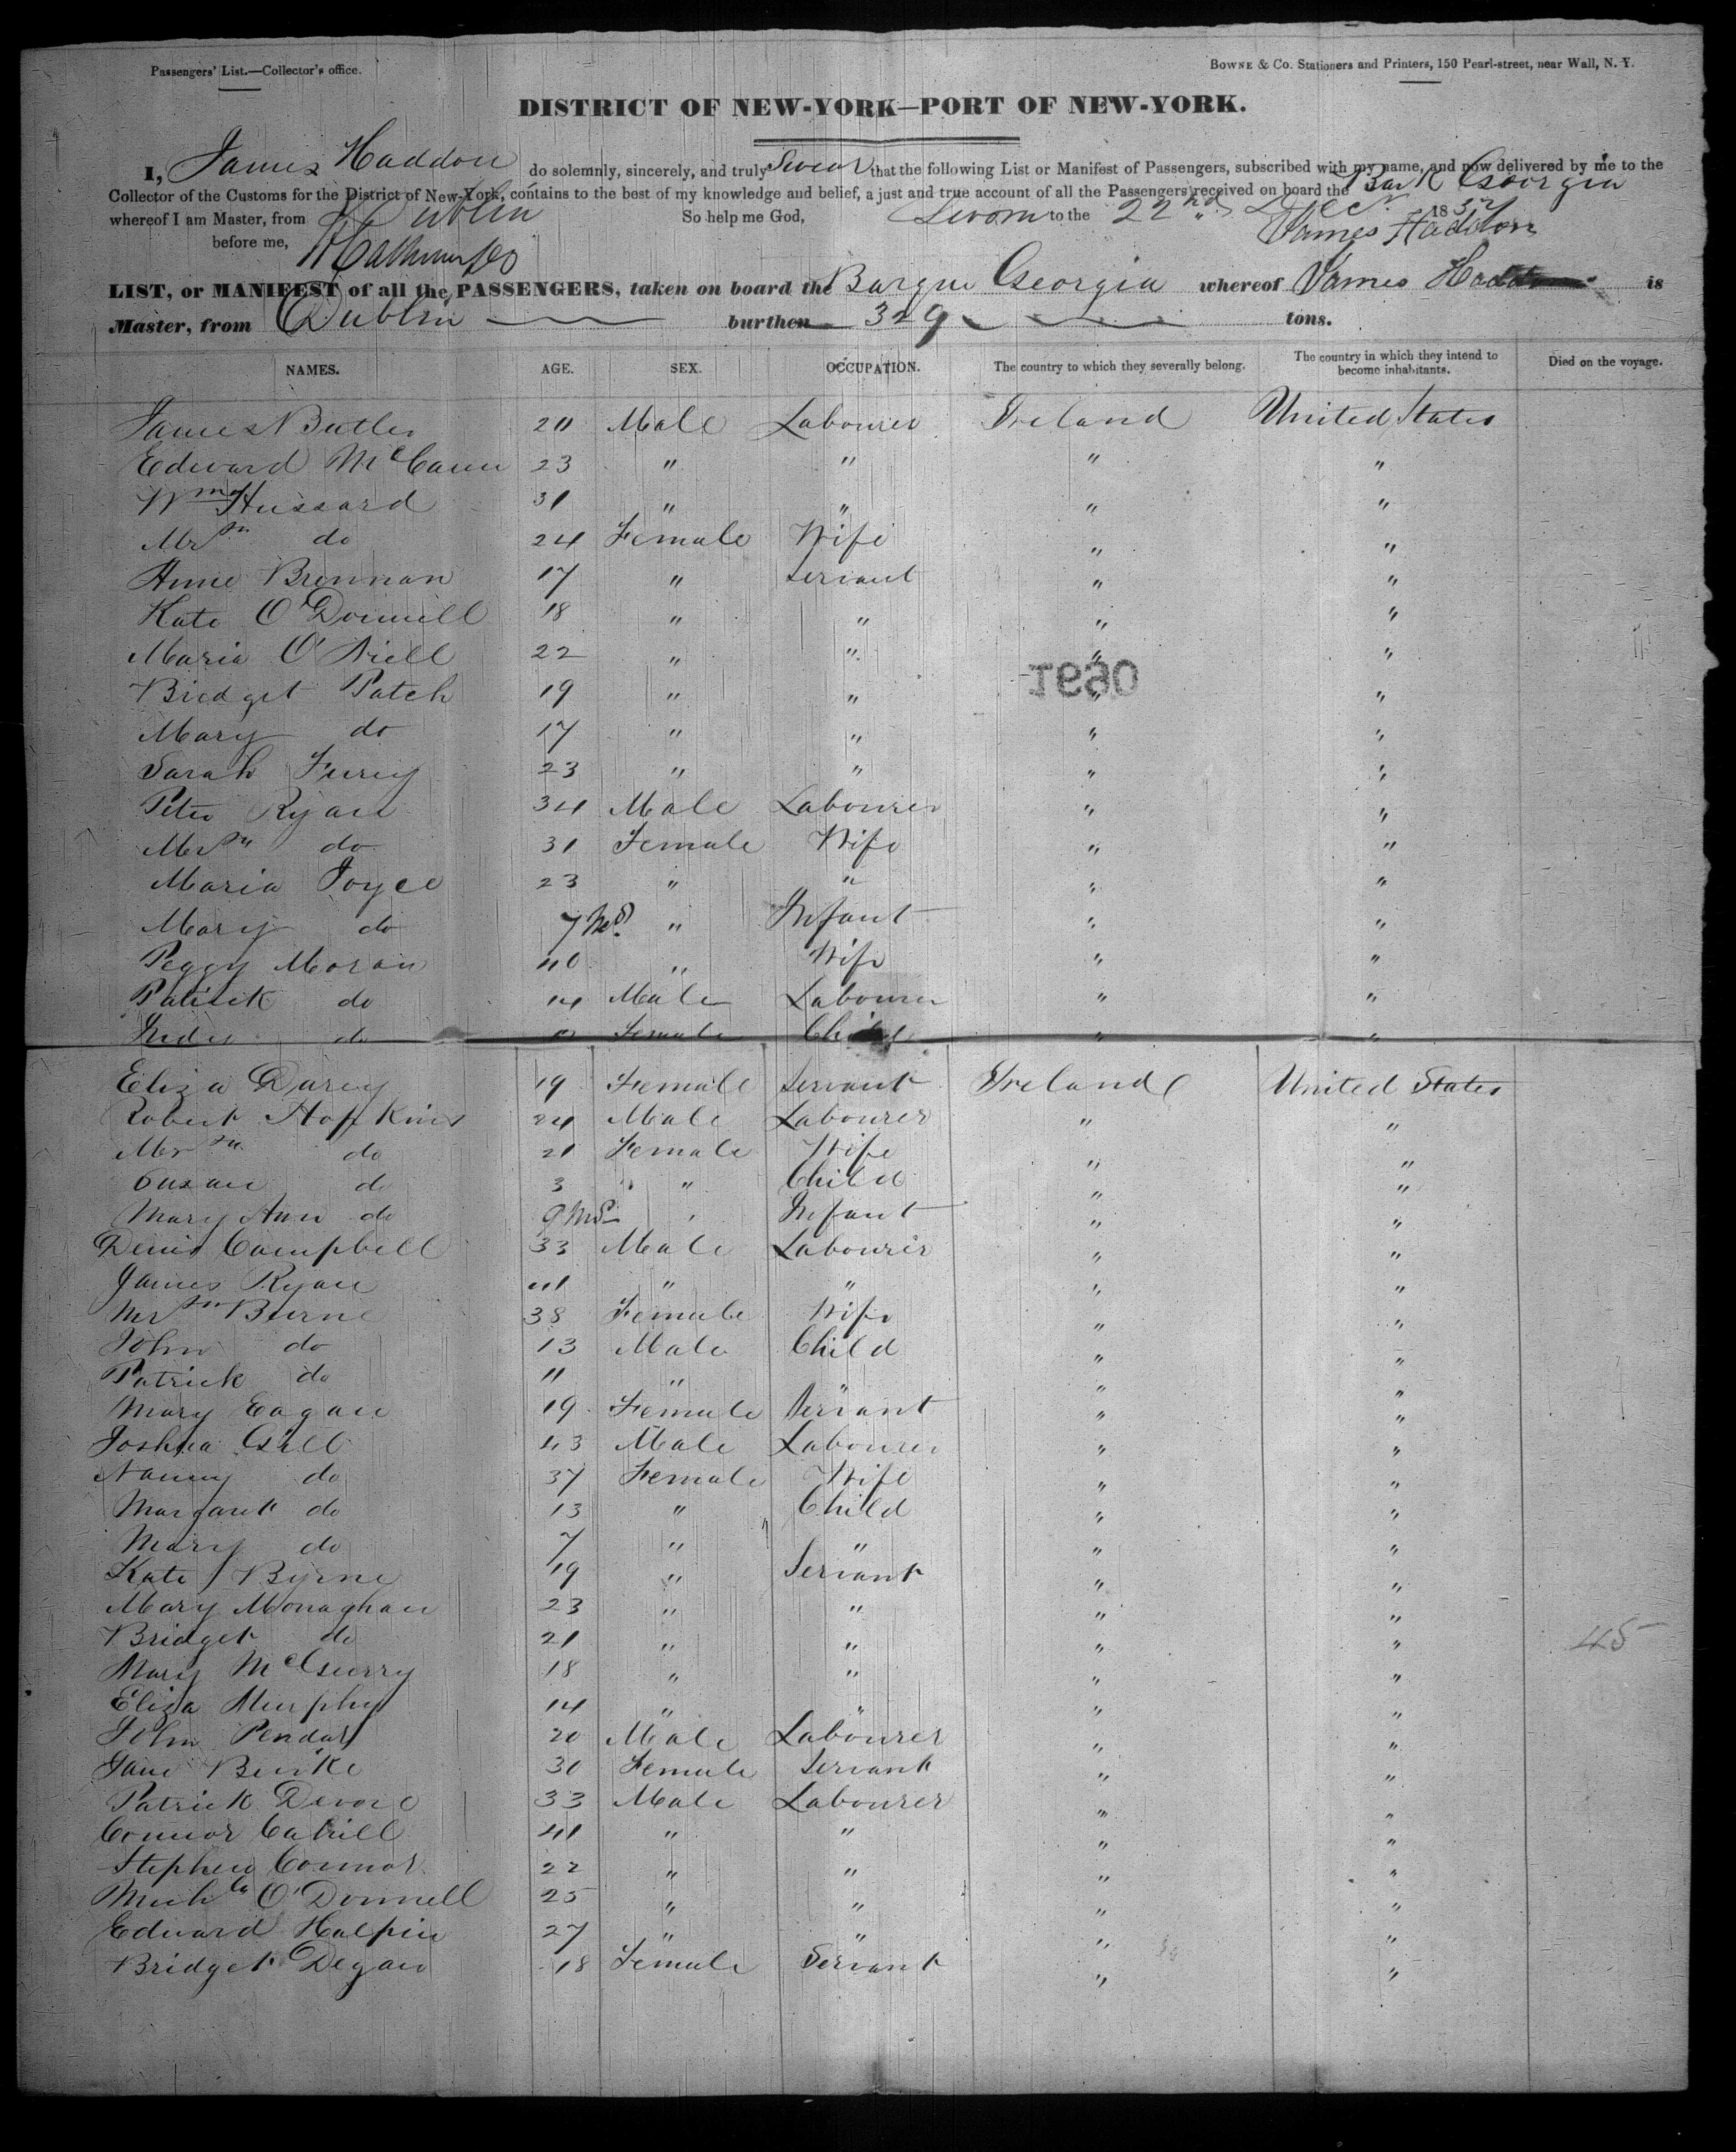 Passengers' List.—Collector's office.
BOWNE & Co. Stationers and Printers, 150 Pearl-street, near Wall, N. Y.
DISTRICT OF NEW-YORK—PORT OF NEW-YORK.
I, James Haddon do solemnly, sincerely, and truly Swear that the following List or Manifest of Passengers, subscribed with my name, and now delivered by me to the
Collector of the Customs for the District of New-York, contains to the best of my knowledge and belief, a just and true account of all the Passengers received on board the Bark Georgia
whereof I am Master, from Dublin So help me God, Sworn to the 22nd Decr. 1837
before me, James Haddon
LIST, or MANIFEST of all the PASSENGERS, taken on board the Barque Georgia whereof James Haddon is
Master, from Dublin burthen 329 tons.
NAMES. AGE. SEX. OCCUPATION. The country to which they severally belong. The country in which they intend to become inhabitants. Died on the voyage.
James Butler 20 Male Labourer Ireland United States
Edward McCann 23 " " " "
Wm Hussard 31 " " " "
Mrs do 24 Female Wife " "
Anne Brennan 17 " Servant " "
Kate O'Donnell 18 " " " "
Maria O'Niell 22 " " " "
Bridget Patch 19 " " " "
1690
Mary do 17 " " " "
Sarah Furey 23 " " " "
Peter Ryan 34 Male Labourer " "
Mrs do 31 Female Wife " "
Maria Joyce 23 " " " "
Mary do 7 Ms. " Infant " "
Peggy Moran 40 " Wife " "
Patrick do 14 Male Labourer " "
do Female Child " "
Eliza Darcy 19 Female Servant Ireland United States
Robert Hopkins 24 Male Labourer " "
Mrs do 21 Female Wife " "
Susan do 3 " Child " "
Mary Ann do 9 Ms " Infant " "
Denis Campbell 33 Male Labourer " "
James Ryan 41 " " " "
Mrs Burne 38 Female Wife " "
John do 13 Male Child " "
Patrick do 11 " " " "
Mary Eagan 19 Female Servant " "
Joshua Gill 43 Male Labourer " "
Nanny do 37 Female Wife " "
Margaret do 13 " Child " "
Mary do 7 " " " "
Kate Byrne 19 " Servant " "
Mary Monaghan 23 " " " "
Bridget do 21 " " " " 45
Mary McGuerry 18 " " " "
Eliza Murphy 14 " " " "
John Pendar 20 Male Labourer " "
Jane Burke 30 Female Servant " "
Patrick Devore 33 Male Labourer " "
Connor Cahill 41 " " " "
Stephen Connor 22 " " " "
Michl O'Donnell 25 " " " "
Edward Halpin 27 " " " "
Bridget Degan 18 Female Servant " "